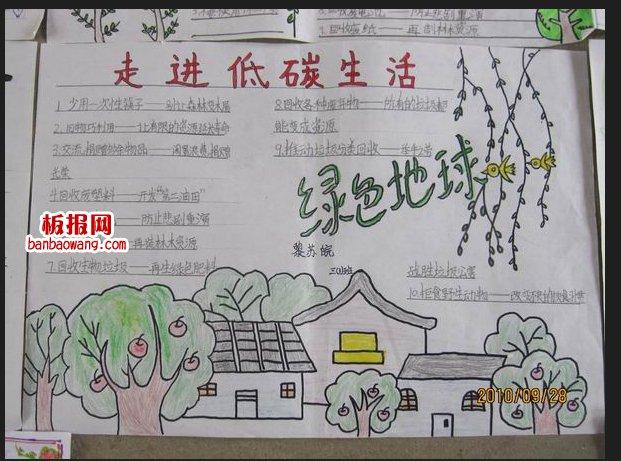 走进低碳生活
1.少用一次性筷子——别让森林变木屑
2.旧物巧利用——让有限的资源延长寿命
3.交流、捐赠多余物品——闲置浪费,捐赠
光荣
4.回收废塑料——开发"第二油田"
——防止悲剧重演
——再造林木资源
7.回收生物垃圾——再生绿色肥料
8.回收各种废弃物——所有的垃圾都
能变成资源
9.推动垃圾分类回收——举手之劳
战胜垃圾公害
10.拒食野生动物——改变不良
绿色地球
黎苏皖
板报网
banbaowang.com
2010/09/28